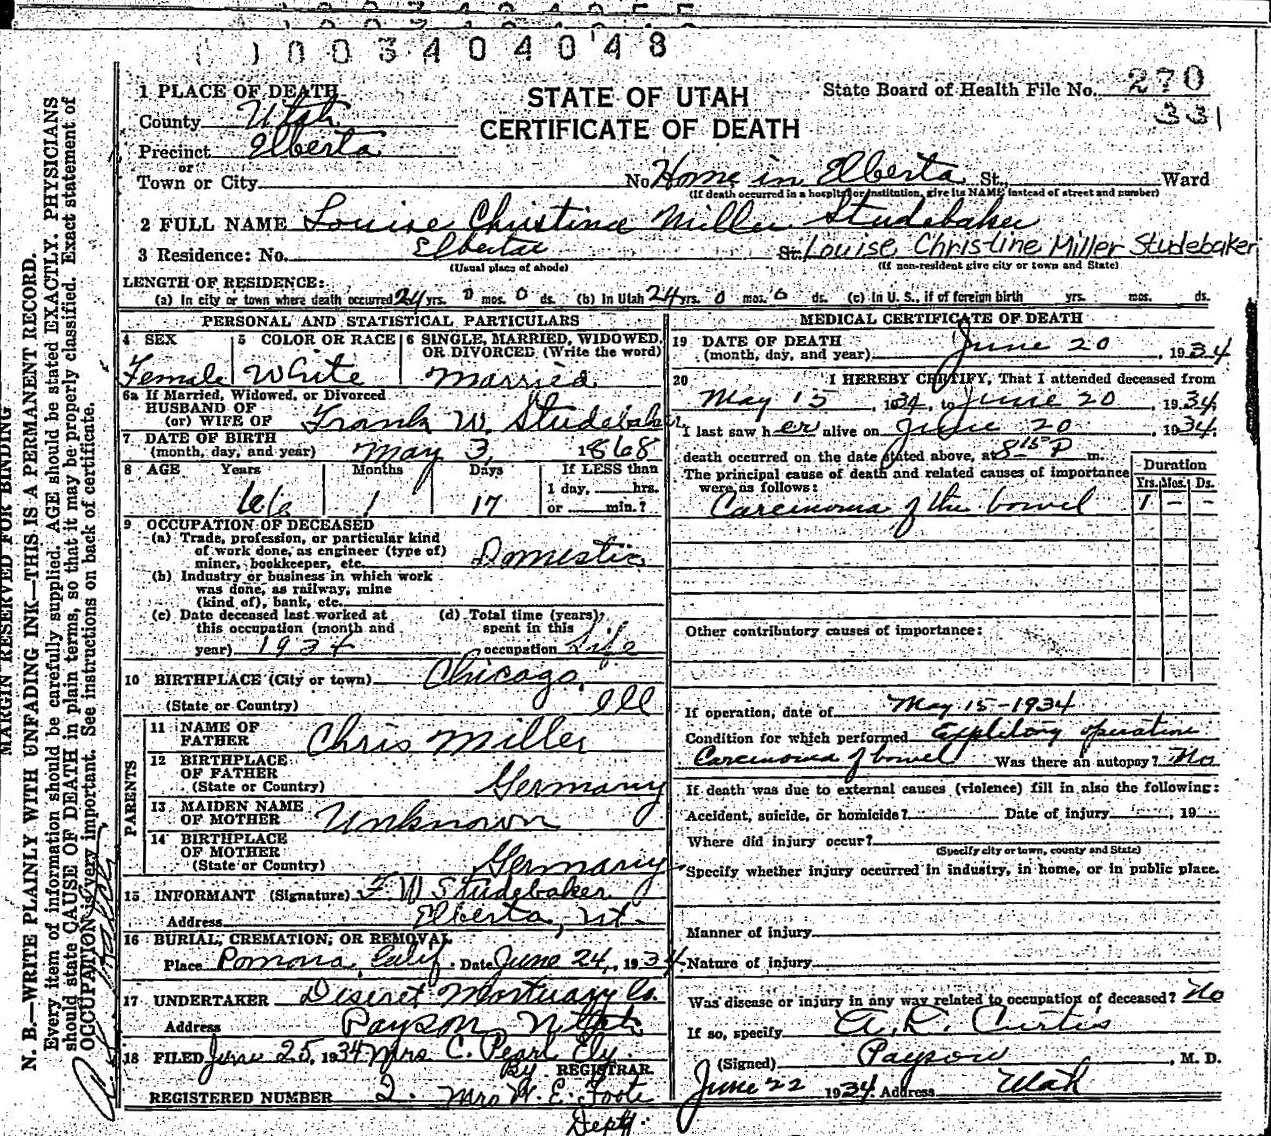 1003404048
1 PLACE OF DEATH
STATE OF UTAH
CERTIFICATE OF DEATH
State Board of Health File No. 270
331
County Utah
Precinct Elberta
or
Town or City
No. Home in Elberta St., Ward
(If death occurred in a hospital or institution, give its NAME instead of street and number)
2 FULL NAME Louise Christina Miller Studebaker
3 Residence: No. Elberta St. Louise Christine Miller Studebaker
(Usual place of abode) (If non-resident give city or town and State)
LENGTH OF RESIDENCE:
(a) In city or town where death occurred 24 yrs. 0 mos. 0 ds. (b) In Utah 24 yrs. 0 mos. 0 ds. (c) In U. S., if of foreign birth yrs. mos. ds.
PERSONAL AND STATISTICAL PARTICULARS
4 SEX 5 COLOR OR RACE 6 SINGLE, MARRIED, WIDOWED, OR DIVORCED (Write the word)
Female White Married
6a If Married, Widowed, or Divorced
HUSBAND OF
(or) WIFE OF Frank W. Studebaker
7 DATE OF BIRTH
(month, day, and year) May 3, 1868
8 AGE Years Months Days If LESS than
1 day, hrs.
or min.?
66 1 17
9 OCCUPATION OF DECEASED
(a) Trade, profession, or particular kind
of work done, as engineer (type of)
miner, bookkeeper, etc. Domestic
(b) Industry or business in which work
was done, as railway, mine
(kind of), bank, etc.
(c) Date deceased last worked at
this occupation (month and
year) 1934
(d) Total time (years)
spent in this
occupation Life
10 BIRTHPLACE (City or town) Chicago,
(State or Country) Ill
PARENTS
11 NAME OF
FATHER Chris Miller
12 BIRTHPLACE
OF FATHER
(State or Country) Germany
13 MAIDEN NAME
OF MOTHER Unknown
14 BIRTHPLACE
OF MOTHER
(State or Country) Germany
15 INFORMANT (Signature) F. W. Studebaker
Address Elberta, Ut.
16 BURIAL, CREMATION, OR REMOVAL
Place Pomona, Calif. Date June 24, 1934
17 UNDERTAKER Diseret Mortuary Co.
Address Payson, Utah
18 FILED June 25, 1934 Mrs C. Pearl Ely.
By REGISTRAR.
REGISTERED NUMBER 2. Mrs W. E. Foote
Depty.
MEDICAL CERTIFICATE OF DEATH
19 DATE OF DEATH
(month, day, and year) June 20, 1934
20 I HEREBY CERTIFY, That I attended deceased from
May 15, 1934, to June 20, 1934
I last saw her alive on June 20, 1934.
death occurred on the date stated above, at 8 15 P m.
The principal cause of death and related causes of importance
were as follows:
Duration
Yrs. Mos. Ds.
Carcinoma of the bowel 1 - -
Other contributory causes of importance:
If operation, date of May 15-1934
Condition for which performed Explitory operation
Carcinoma of bowel Was there an autopsy? No
If death was due to external causes (violence) fill in also the following:
Accident, suicide, or homicide? Date of injury , 19
Where did injury occur?
(Specify city or town, county and State)
Specify whether injury occurred in industry, in home, or in public place.
Manner of injury
Nature of injury
Was disease or injury in any way related to occupation of deceased? No
If so, specify A. L. Curtis
(Signed) Payson, M. D.
June 22 1934 Address Utah
MARGIN RESERVED FOR BINDING
N. B.—WRITE PLAINLY WITH UNFADING INK—THIS IS A PERMANENT RECORD.
Every item of information should be carefully supplied. AGE should be stated EXACTLY. PHYSICIANS
should state CAUSE OF DEATH in plain terms, so that it may be properly classified. Exact statement of
OCCUPATION is very important. See instructions on back of certificate.